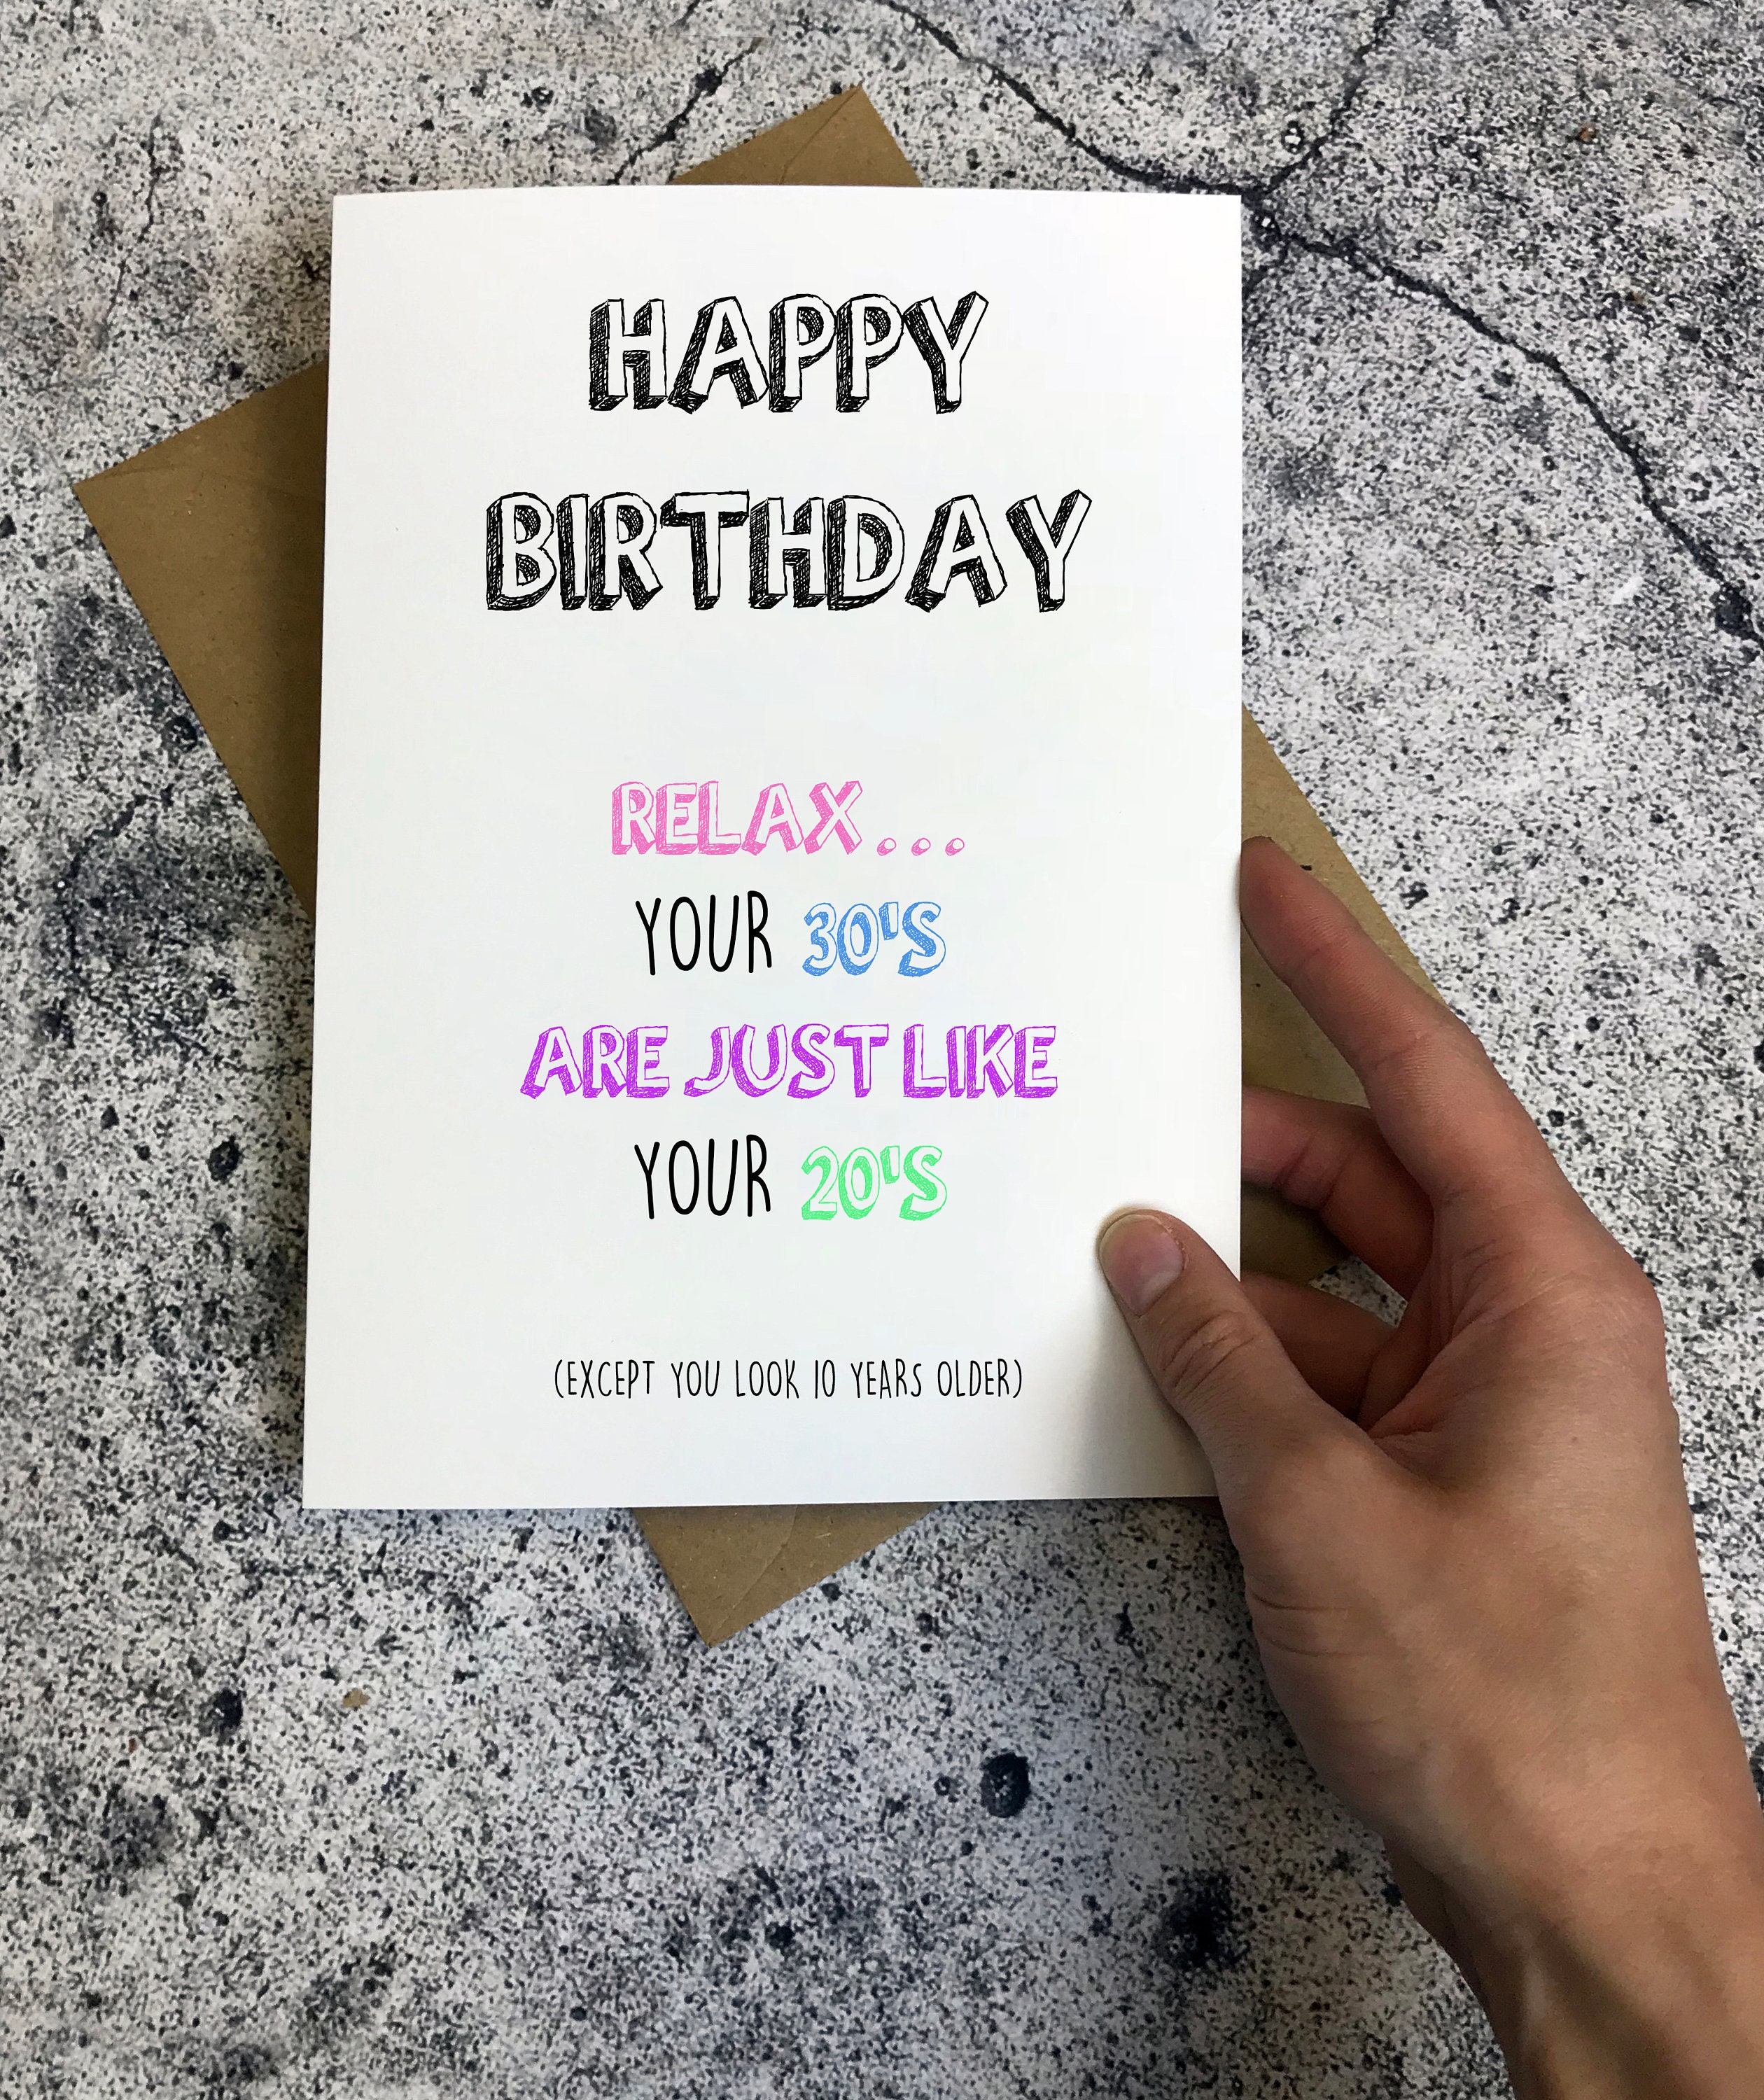 HAPPY
BIRTHDAY
RELAX...
YOUR 30'S
ARE JUST LIKE
YOUR 20'S
(EXCEPT YOU LOOK 10 YEARS OLDER)